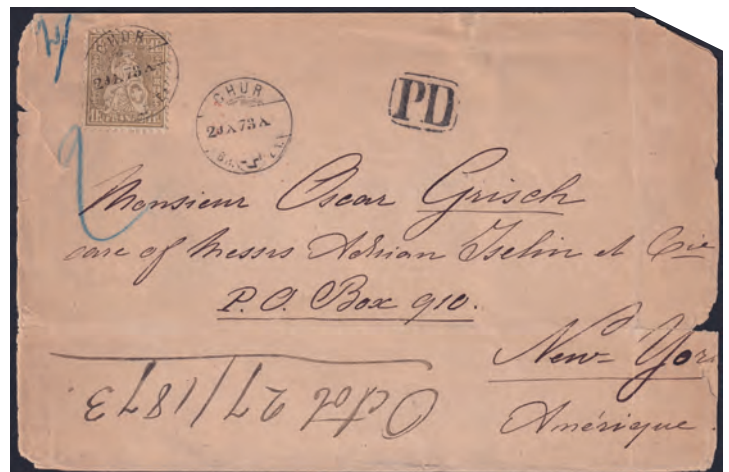 CHUR
CHUR
PD
2
Monsieur Oscar Grisch
care of Messrs Adrian Iselin et Cie
P.O. Box 910.
New-Yor
Amérique.
Octob 27/1873.